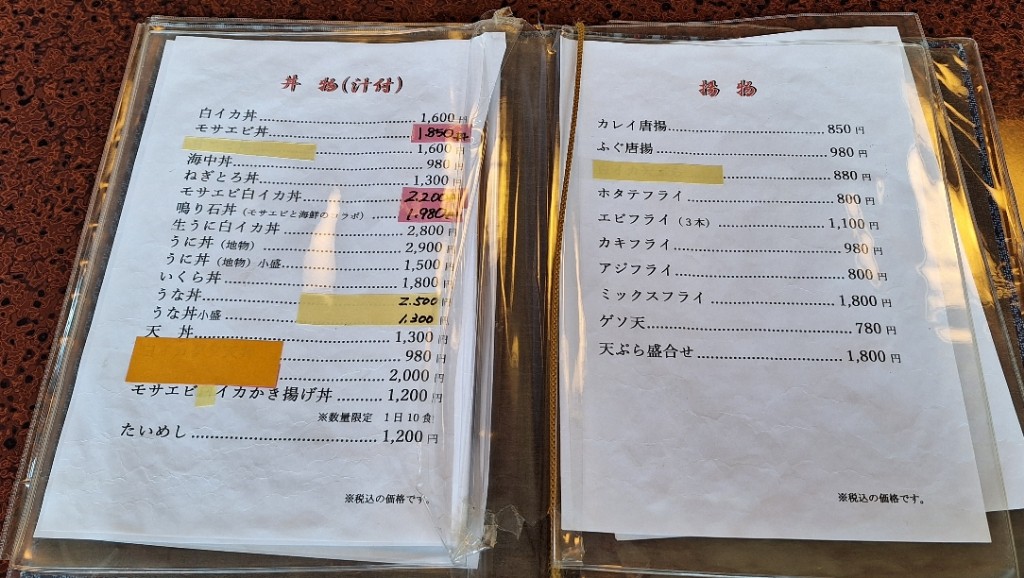 丼物(汁付)
白イカ丼 1,600円
モサエビ丼 1.850円
1,600円
海中丼 980円
ねぎとろ丼 1,300円
モサエビ白イカ丼 2.200
鳴り石丼(モサエビと海鮮のコラボ) 1.980
生うに白イカ丼 2,800円
うに丼(地物) 2,900円
うに丼(地物)小盛 1,500円
いくら丼 1,800円
うな丼 2.500円
うな丼小盛 1.300円
天 丼 1,300円
980円
2,000円
モサエビ イカかき揚げ丼 1,200円
※数量限定 1日10食
たいめし 1,200円
※税込の価格です。
揚物
カレイ唐揚 850円
ふぐ唐揚 980円
880円
ホタテフライ 800円
エビフライ(3本) 1,100円
カキフライ 980円
アジフライ 800円
ミックスフライ 1,800円
ゲソ天 780円
天ぷら盛合せ 1,800円
※税込の価格です。